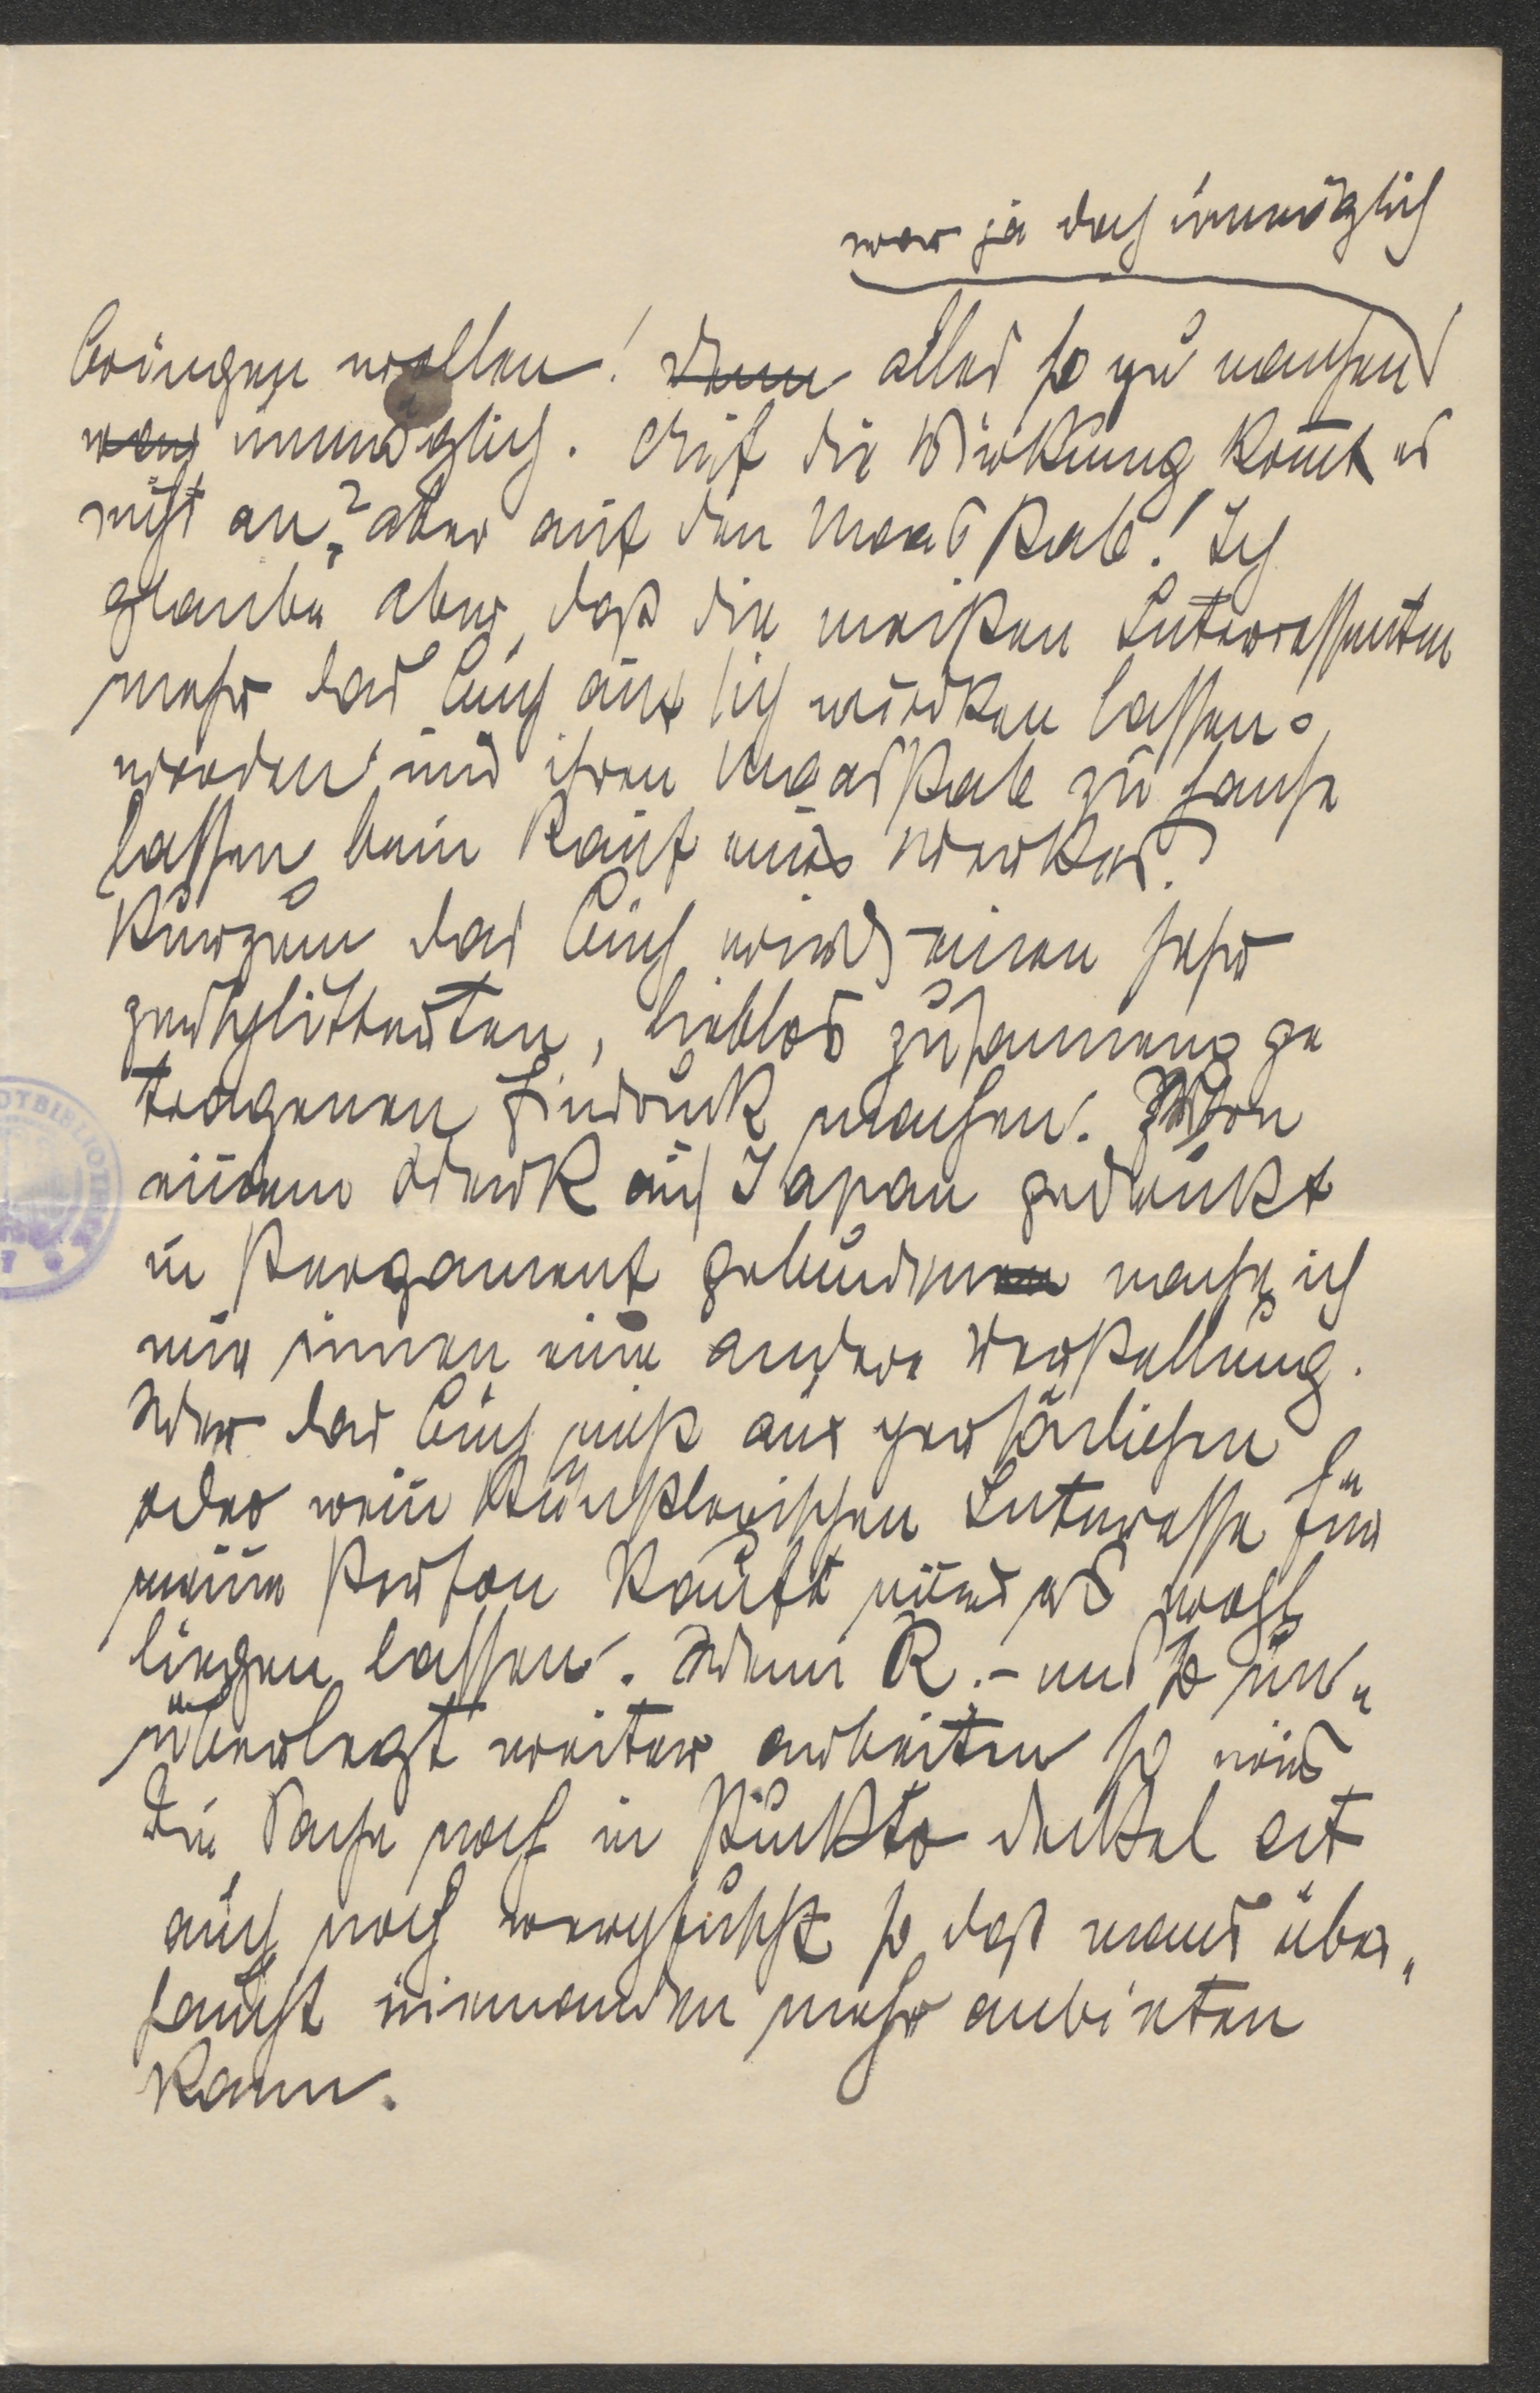 war ja doch unmöglich
bringen wollen! denn alles so zu machen
war unmöglich. Auf die Wirkung kommt es
nicht an? aber auf den Maasstab! Ich
glaube aber, dass die meisten Interessenten
mehr das Buch auf sich wirken lassen
werden und ihren Maasstab zu hause
lassen beim Kauf eines Werkes.
Kurzum das Buch wird einen sehr
zersplitterten, lieblos zusammen ge
tragenen Eindruck machen. Von
einem Werk auf Japan gedruckt
in Pergament gebunden mache ich
mir immer eine andere Vorstellung.
Wer das Buch nicht aus persönlichem
oder rein künstlerischen Interesse für
meine Person kauft wird es wohl
liegen lassen. Wenn R. – und so un„
überlegt weiter arbeiten so wird
die Sache noch in Punkto deckel ect
auch noch verpfuscht so dass mans über„
haupt niemanden mehr anbieten
kann.